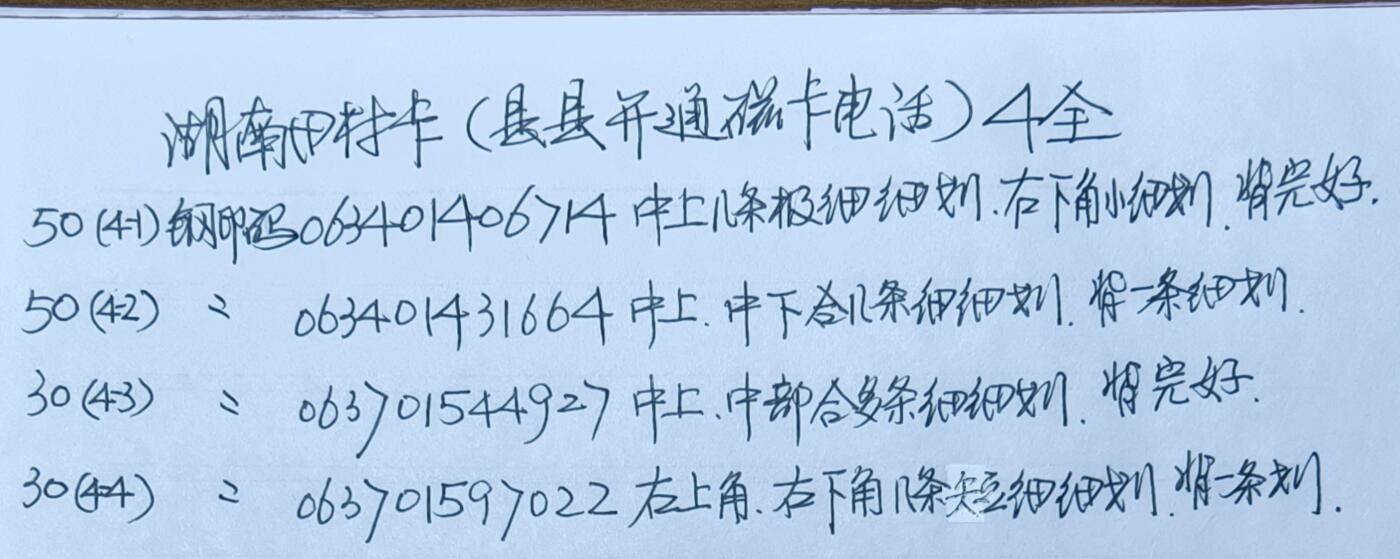 湖南田村卡(县县开通磁卡电话)4全
50(4-1)钢印码063401406714中上几条极细细划.右下角小细划.背完好.
50(4-2) 〃 063401431664中上.中下合几条细细划.背一条细划.
30(4-3) 〃 063701544927中上.中部合多条细细划.背完好.
30(4-4) 〃 063701597022右上角.右下角几条短细细划.背一条划.